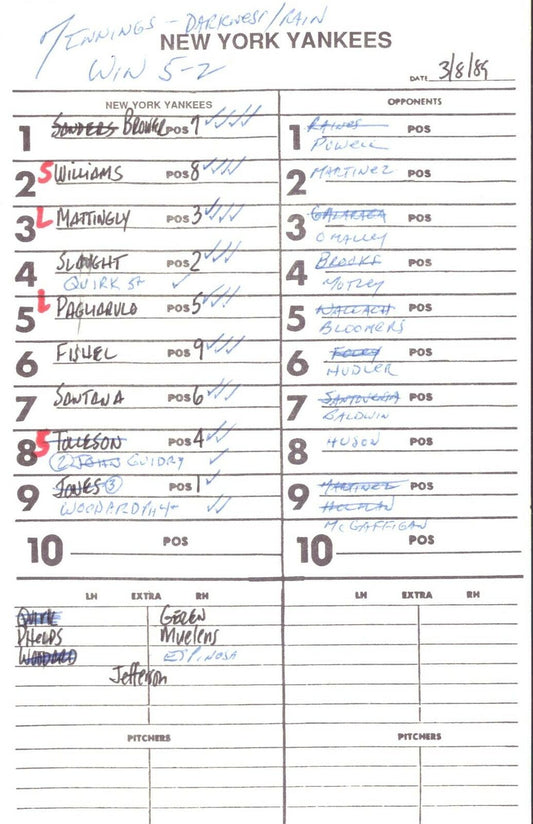 7 INNINGS - DARKNESS/RAIN
WIN 5-2
NEW YORK YANKEES
DATE 3/8/89
NEW YORK YANKEES
1 SANDERS BROWER POS 7 ✓✓✓✓
2 S WILLIAMS POS 8 ✓✓✓
3 L MATTINGLY POS 3 ✓✓✓
4 SLAUGHT POS 2 ✓✓✓
QUIRK 5+ ✓
5 L PAGLIARULO POS 5 ✓✓✓
6 FISHEL POS 9 ✓✓✓
7 SANTANA POS 6 ✓✓✓
8 S TOLLESON POS 4 ✓✓
(2) JOHN GUIDRY ✓
9 JONES (3) POS 1 ✓
WOODARD PH 4+ ✓✓
10 POS
OPPONENTS
1 RAINES POS
POWELL
2 MARTINEZ POS
3 GALARAGA POS
O'MALLEY
4 BROOKS POS
MOTLEY
5 WALLACH POS
BLOOMERS
6 FOLEY POS
HUDLER
7 SANTOVENIA POS
BALDWIN
8 HUSON POS
9 MARTINEZ POS
HOLMAN
McGAFFIGAN
10 POS
LH EXTRA RH
QUIRK GEREN
PHELPS MUELENS
WOODARD ESPINOSA
Jefferson
PITCHERS
LH EXTRA RH
PITCHERS